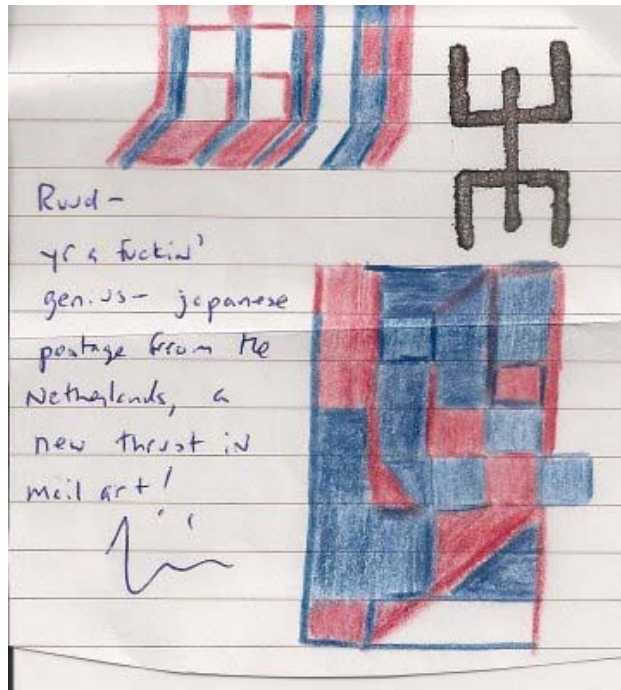 Ruud -
yr a fuckin'
genius - japanese
postage from the
Netherlands, a
new thrust in
mail art!